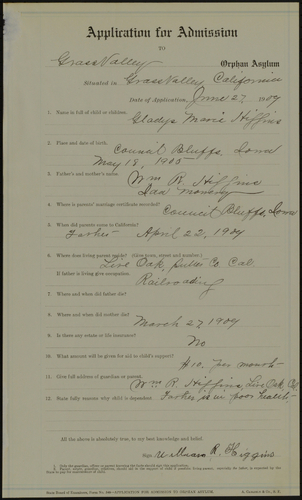 Application for Admission
TO
Grass Valley Orphan Asylum
Situated in Grass Valley, California
Date of Application, June 27, 1909
1. Name in full of child or children,
Gladys Marie Higgins
2. Place and date of birth.
Council Bluffs, Iowa
May 18, 1905
3. Father's and mother's name.
Wm R. Higgins
Ida
4. Where is parents' marriage certificate recorded?
Council Bluffs, Iowa
5. When did parents come to California?
Father April 22, 1909
6. Where does living parent reside? (Give town, street and number)
Live Oak, Sutter Co. Cal.
If father is living give occupation.
Railroading
7. Where and when did father die?
8. Where and when did mother die?
March 27, 1909
9. Is there any estate or life insurance?
No
10. What amount will be given for aid to child's support?
$10. per month
11. Give full address of guardian or parent.
Wm R. Higgins, Live Oak, Cal
12. State fully reasons why child is dependent.
Father is in poor health
All the above is absolutely true, to my best knowledge and belief.
Sign, William R. Higgins